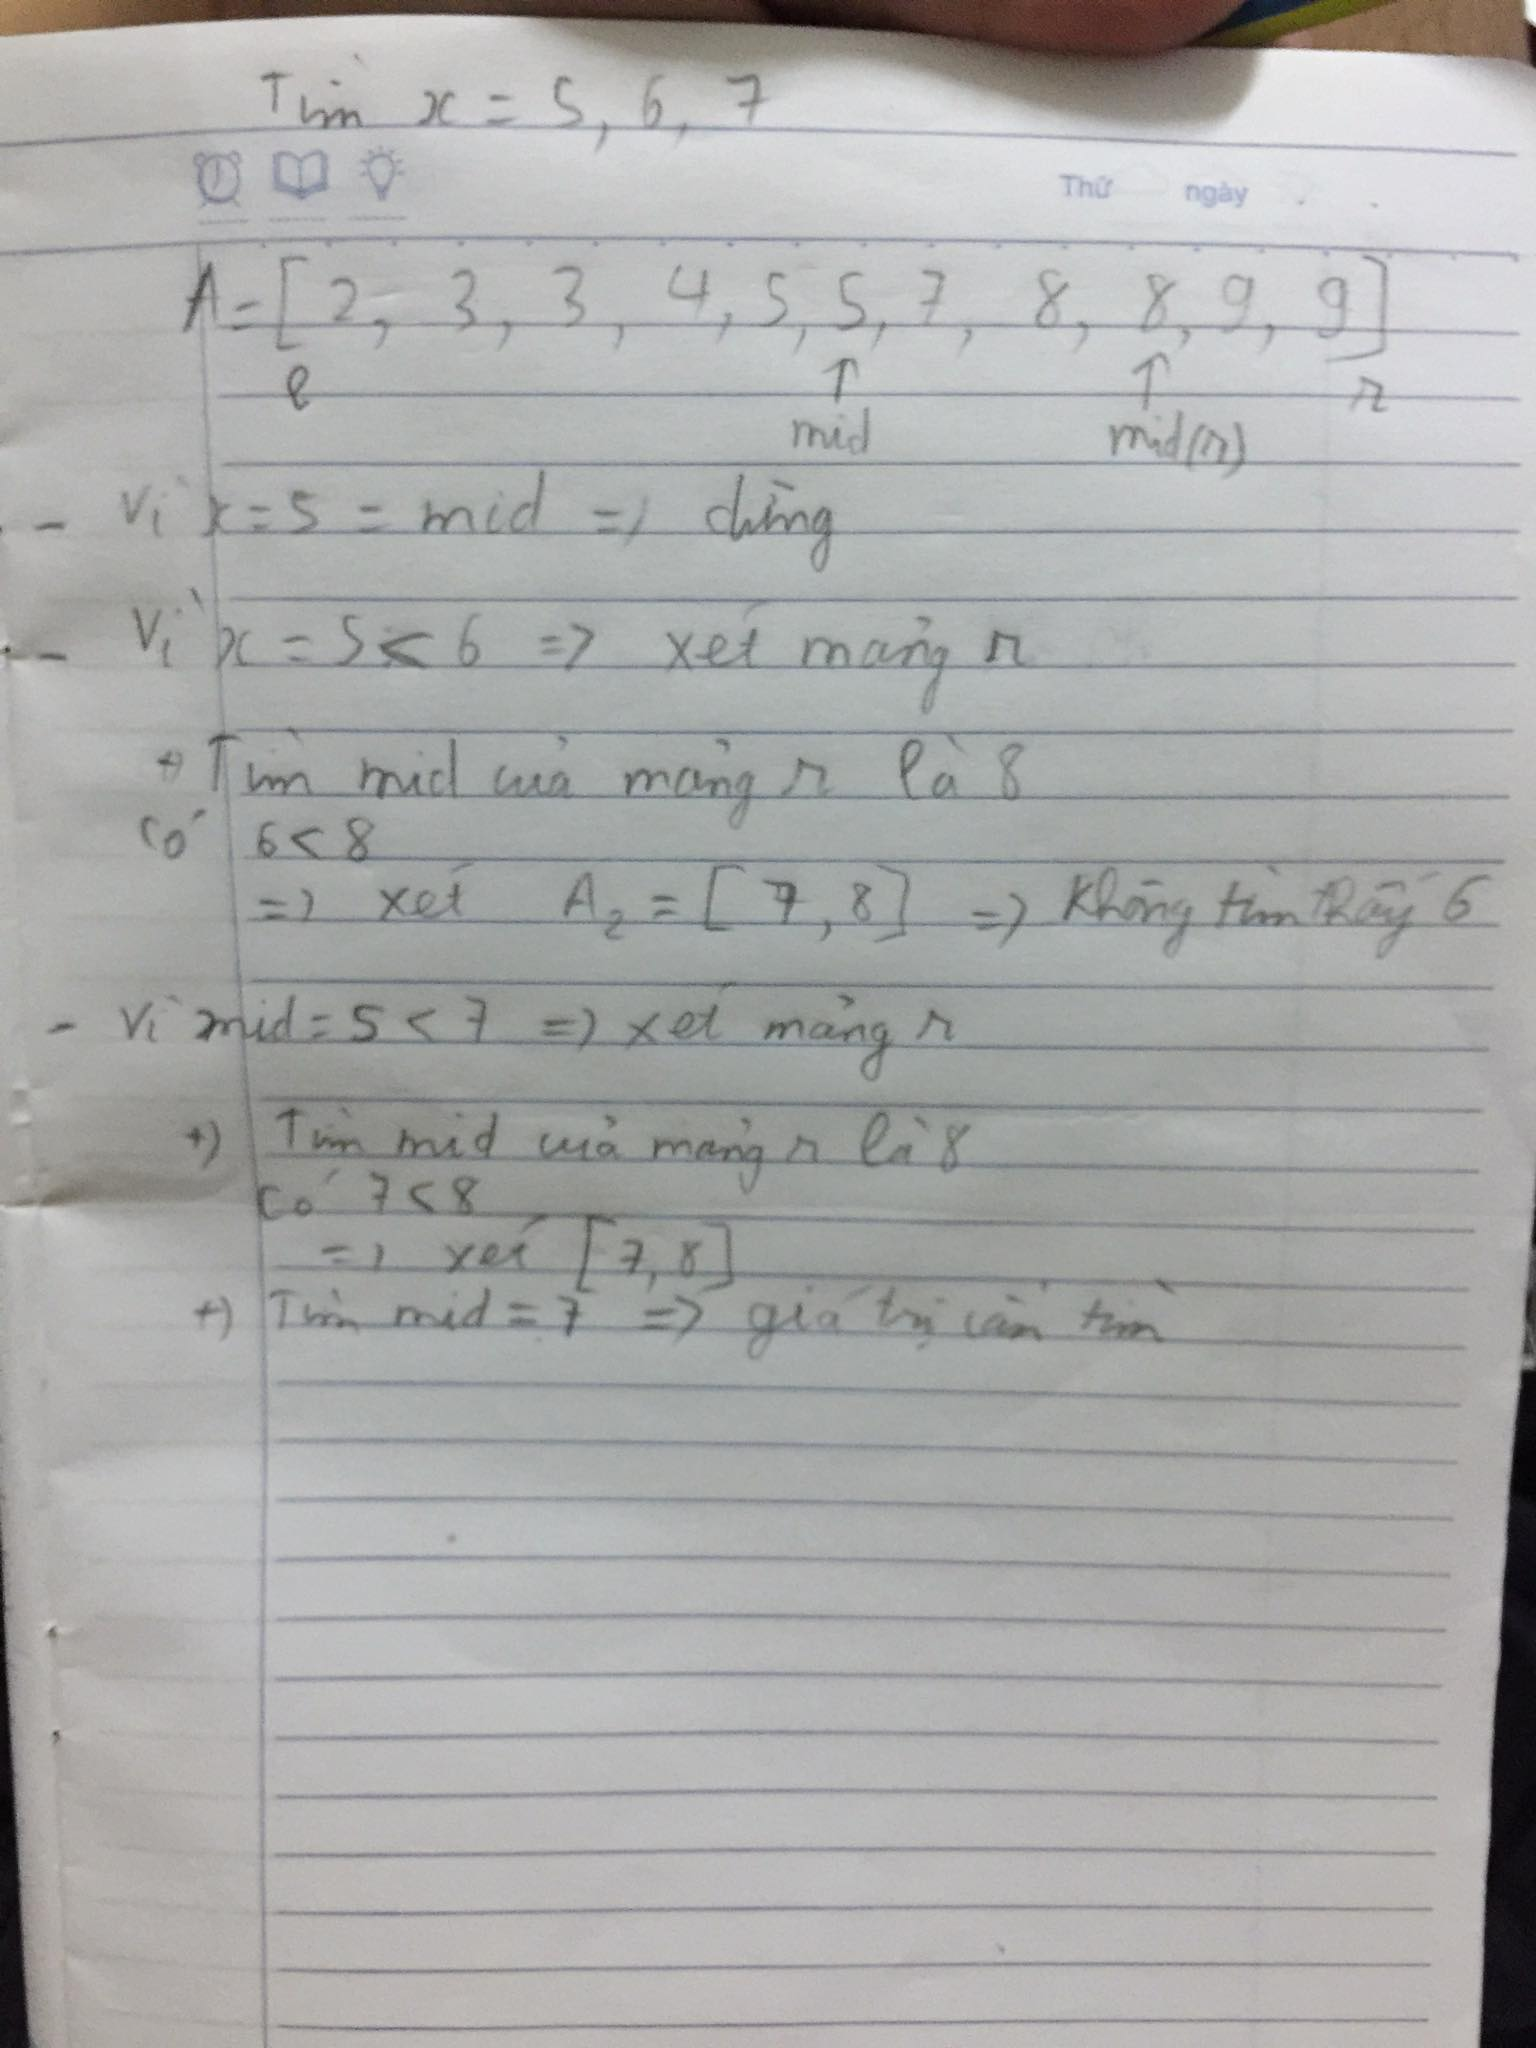 Tìm x = 5, 6, 7
Thứ ngày
A = [ 2, 3, 3, 4, 5, 5, 7, 8, 8, 9, 9 ]
l ↑ ↑ r
mid mid(r)
- Vì x = 5 = mid => dừng
- Vì x = 5 < 6 => xét mảng r
+) Tìm mid của mảng r là 8
Có 6 < 8
=> xét A2 = [ 7, 8 ] => Không tìm thấy 6
- Vì mid = 5 < 7 => xét mảng r
+) Tìm mid của mảng r là 8
Có 7 < 8
=> xét [ 7, 8 ]
+) Tìm mid = 7 => giá trị cần tìm